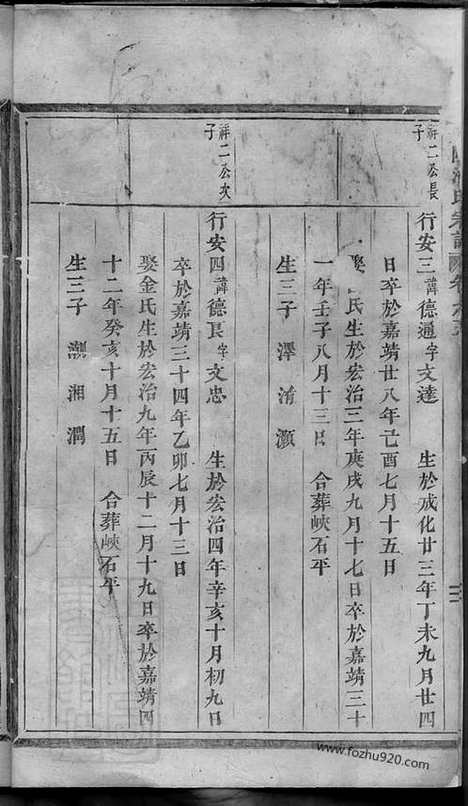 祥二公長子
行安三諱德通字文達 生於成化廿三年丁未九月廿四
日卒於嘉靖廿八年己酉七月十五日
娶 氏生於宏治三年庚戌九月十七日卒於嘉靖三十
一年壬子八月十三日 合葬峽石平
生三子 澤 淯 灝
祥二公次子
行安四諱德良字文忠 生於宏治四年辛亥十月初九日
卒於嘉靖三十四年乙卯七月十三日
娶金氏生於宏治九年丙辰十二月十九日卒於嘉靖四
十二年癸亥十月十五日 合葬峽石平
生三子 湘 澗
www.fozhu920.com